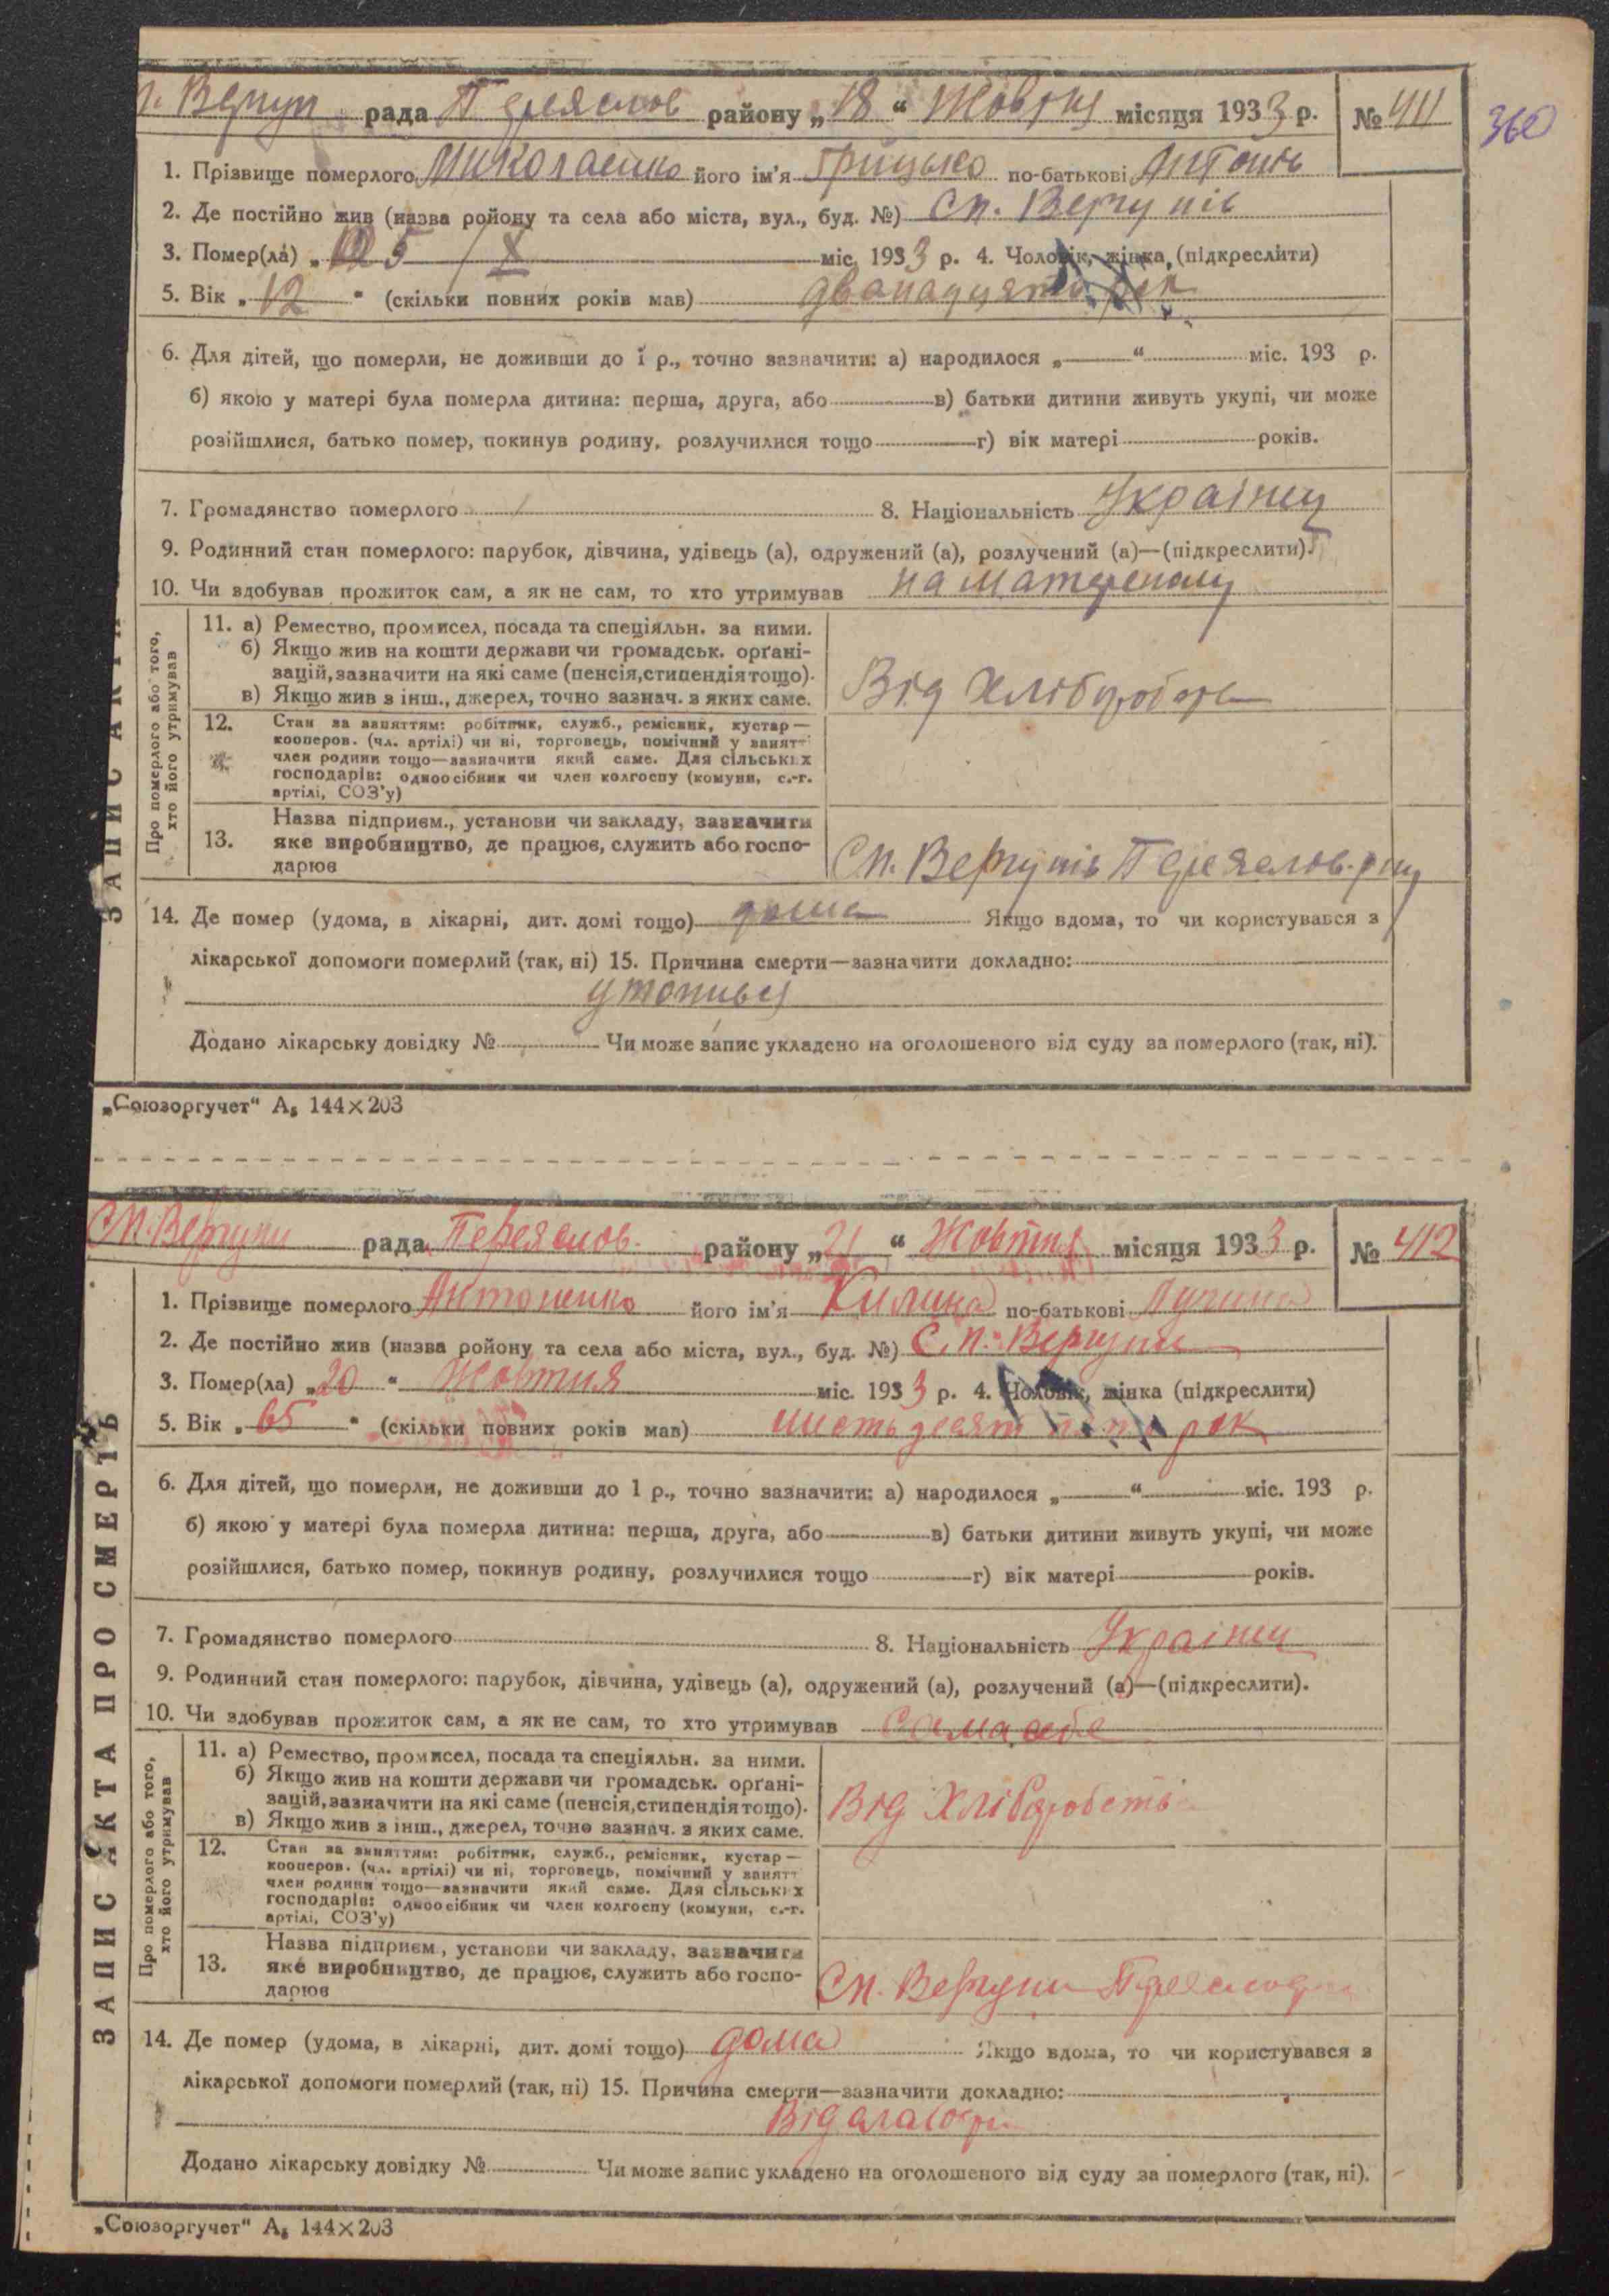 рада Переяслов району „18“ Жовтня місяця 1933 р. № 411
360
1. Прізвище померлого Миколаенко його ім'я Грицько по-батькові Антонів
2. Де постійно жив (назва ройону та села або міста, вул., буд. №) Сп. Вергунів
3. Помер(ла) „ 5 / X міс. 1933 р. 4. Чоловік, жінка, (підкреслити)
5. Вік „12“ (скільки повних років мав) дванадцять рок
6. Для дітей, що померли, не доживши до 1 р., точно зазначити: а) народилося „ “ міс. 193 р.
б) якою у матері була померла дитина: перша, друга, або в) батьки дитини живуть укупі, чи може
розійшлися, батько помер, покинув родину, розлучилися тощо г) вік матері років.
7. Громадянство померлого 8. Національність Україنец
9. Родинний стан померлого: парубок, дівчина, удівець (а), одружений (а), розлучений (а)—(підкреслити).
10. Чи здобував прожиток сам, а як не сам, то хто утримував на материному
ЗАПИС АКТА
Про померлого або того,
хто його утримував
11. а) Ремество, промисел, посада та спеціяльн. за ними.
б) Якщо жив на кошти держави чи громадськ. орґані-
зацій, зазначити на які саме (пенсія, стипендія тощо).
в) Якщо жив з інш., джерел, точно зазнач. з яких саме.
Від
12. Стан за заняттям: робітник, служб., ремісник, кустар—
кооперов. (чл. артілі) чи ні, торговець, помічний у занятт
член родини тощо—зазначити який саме. Для сільських
господарів: одноосібник чи член колгоспу (комуни, с.-г.
артілі, СОЗ'у)
13. Назва підприєм., установи чи закладу, зазначити
яке виробництво, де працює, служить або госпо-
дарює
Сп. Вергунів Переяслов. р-ну
14. Де помер (удома, в лікарні, дит. домі тощо) дома Якщо вдома, то чи користувався з
лікарської допомоги померлий (так, ні) 15. Причина смерти—зазначити докладно:
утопився
Додано лікарську довідку № Чи може запис укладено на оголошеного від суду за померлого (так, ні).
„Союзоргучет“ А₅ 144×203
Сп. Вергуни рада Переяслов. району „21“ Жовтня місяця 1933 р. № 412
1. Прізвище померлого Антоненко його ім'я Килина по-батькові
2. Де постійно жив (назва ройону та села або міста, вул., буд. №) С. п. Вергуни
3. Помер(ла) „20“ Жовтня міс. 1933 р. 4. Чоловік, жінка (підкреслити)
5. Вік „65“ (скільки повних років мав) шистьдесят пять рок
6. Для дітей, що померли, не доживши до 1 р., точно зазначити: а) народилося „ “ міс. 193 р.
б) якою у матері була померла дитина: перша, друга, або в) батьки дитини живуть укупі, чи може
розійшлися, батько помер, покинув родину, розлучилися тощо г) вік матері років.
7. Громадянство померлого 8. Національність Українец
9. Родинний стан померлого: парубок, дівчина, удівець (а), одружений (а), розлучений (а)—(підкреслити).
10. Чи здобував прожиток сам, а як не сам, то хто утримував сама себе
ЗАПИС АКТА ПРО СМЕРТЬ
Про померлого або того,
хто його утримував
11. а) Ремество, промисел, посада та спеціяльн. за ними.
б) Якщо жив на кошти держави чи громадськ. орґані-
зацій, зазначити на які саме (пенсія, стипендія тощо).
в) Якщо жив з інш., джерел, точно зазнач. з яких саме.
Від
12. Стан за заняттям: робітник, служб., ремісник, кустар—
кооперов. (чл. артілі) чи ні, торговець, помічний у занятт
член родини тощо—зазначити який саме. Для сільських
господарів: одноосібник чи член колгоспу (комуни, с.-г.
артілі, СОЗ'у)
13. Назва підприєм., установи чи закладу, зазначити
яке виробництво, де працює, служить або госпо-
дарює
Сп. Вергуни
14. Де помер (удома, в лікарні, дит. домі тощо) дома Якщо вдома, то чи користувався з
лікарської допомоги померлий (так, ні) 15. Причина смерти—зазначити докладно:
Від
Додано лікарську довідку № Чи може запис укладено на оголошеного від суду за померлого (так, ні).
„Союзоргучет“ А₅ 144×203